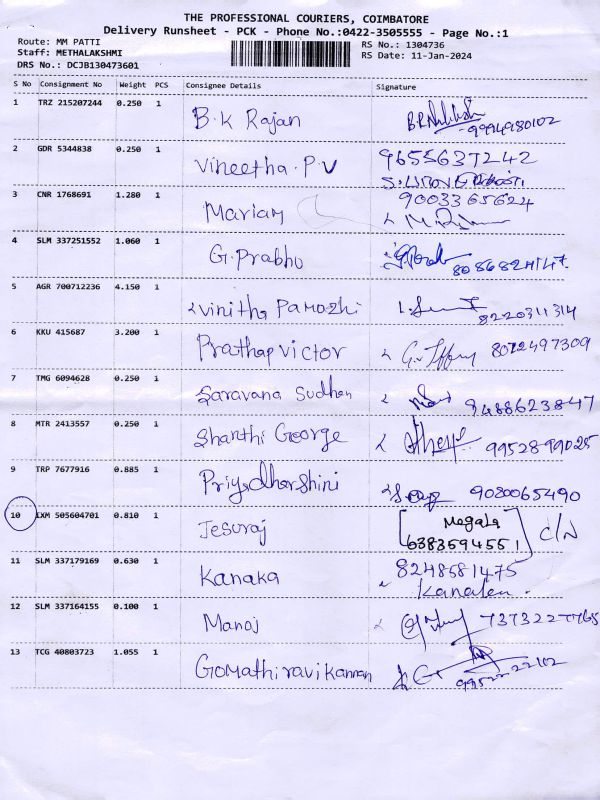 THE PROFESSIONAL COURIERS, COIMBATORE
Delivery Runsheet - PCK - Phone No.:0422-3505555 - Page No.:1
Route: MM PATTI
Staff: METHALAKSHMI
DRS No.: DCJB130473601
RS No.: 1304736
RS Date: 11-Jan-2024
S No Consignment No Weight PCS Consignee Details Signature
1 TRZ 215207244 0.250 1 B.K Rajan 9994980102
2 GDR 5344838 0.250 1 Vineetha.P.V 9655637242
3 CNR 1768691 1.280 1 Mariam 9003365624
4 SLM 337251552 1.060 1 G.Prabhu
5 AGR 700712236 4.150 1 Vinitha Pamozhi 8220311314
6 KKU 415687 3.200 1 Prathap Victor 8072497309
7 TMG 6094628 0.250 1 Saravana Sudhan 9488623847
8 MTR 2413557 0.250 1 Shanthi George 9952899025
9 TRP 7677916 0.885 1 Priyadharshini 9080065490
10 LXM 505604701 0.810 1 Jesuraj [Megala
6383594551] C/N
11 SLM 337179169 0.630 1 Kanaka 8248581475
12 SLM 337164155 0.100 1 Manoj
13 TCG 40803723 1.055 1 Gomathiravikannan 9952222102